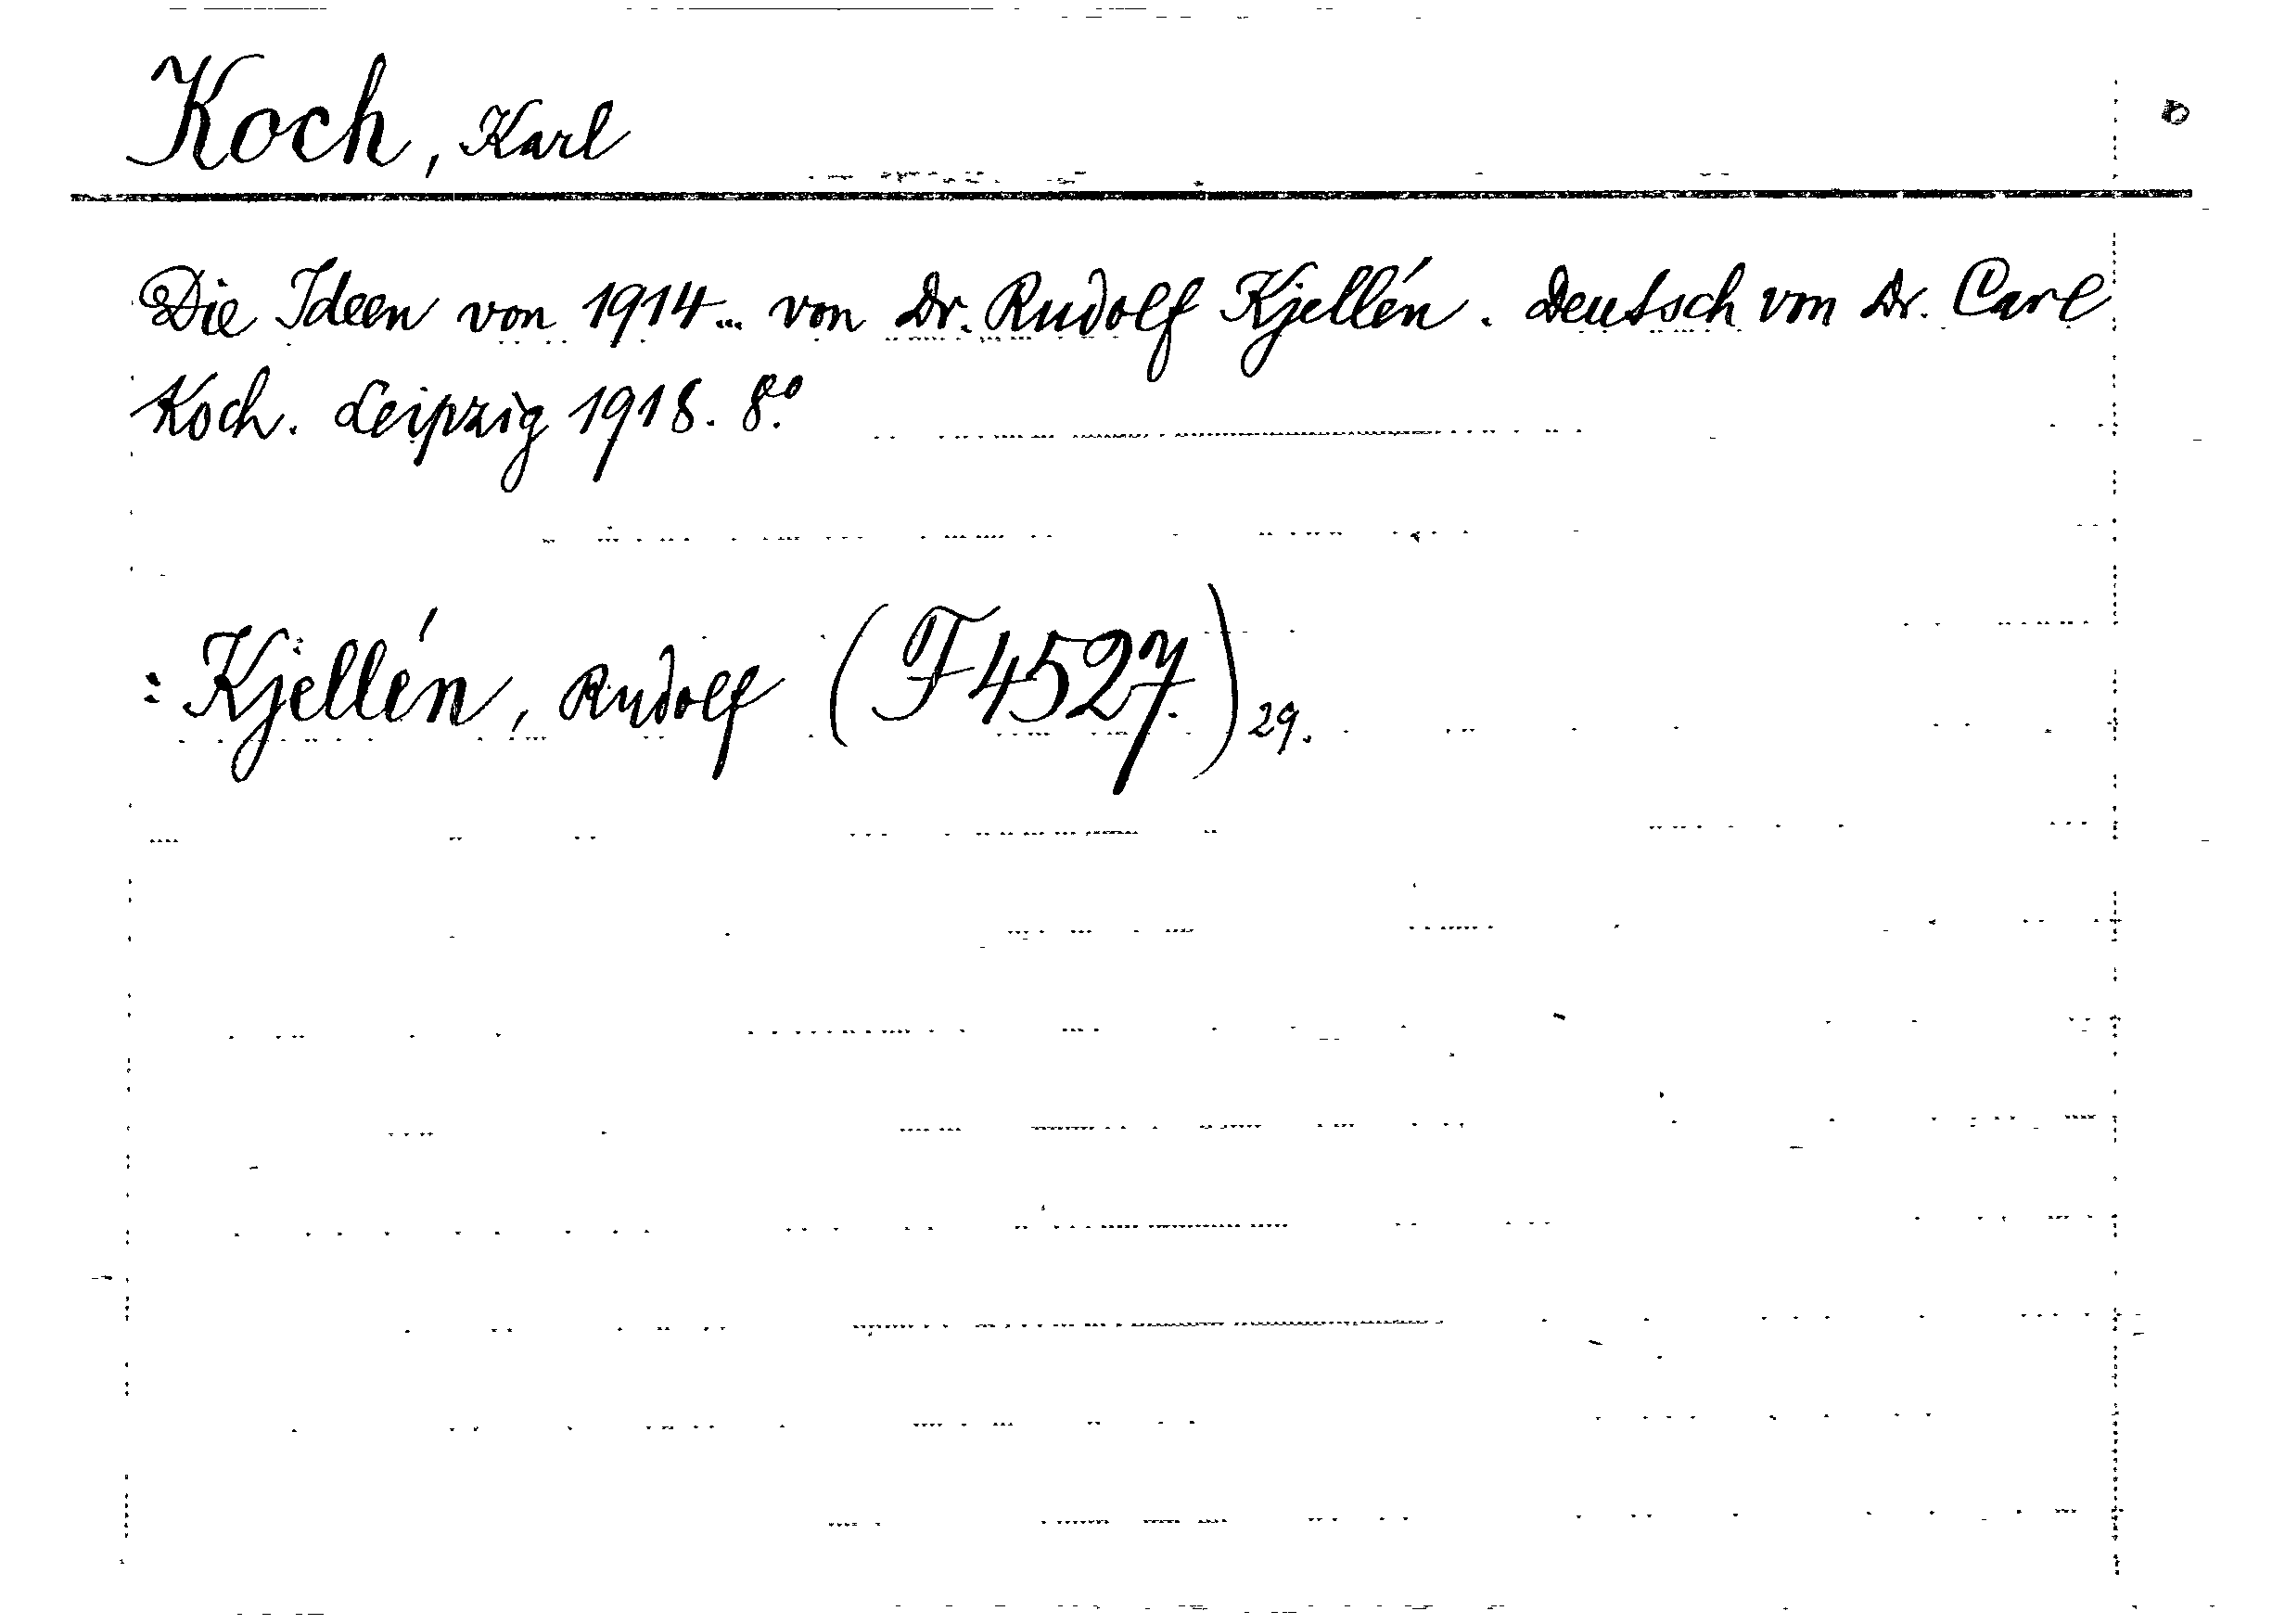 Koch, Karl
Die Ideen von 1914... von Dr. Rudolf Kjellén. Deutsch von Dr. Carl
Koch. Leipzig 1918. 8.º
: Kjellén, Rudolf (F 4527.) 29.